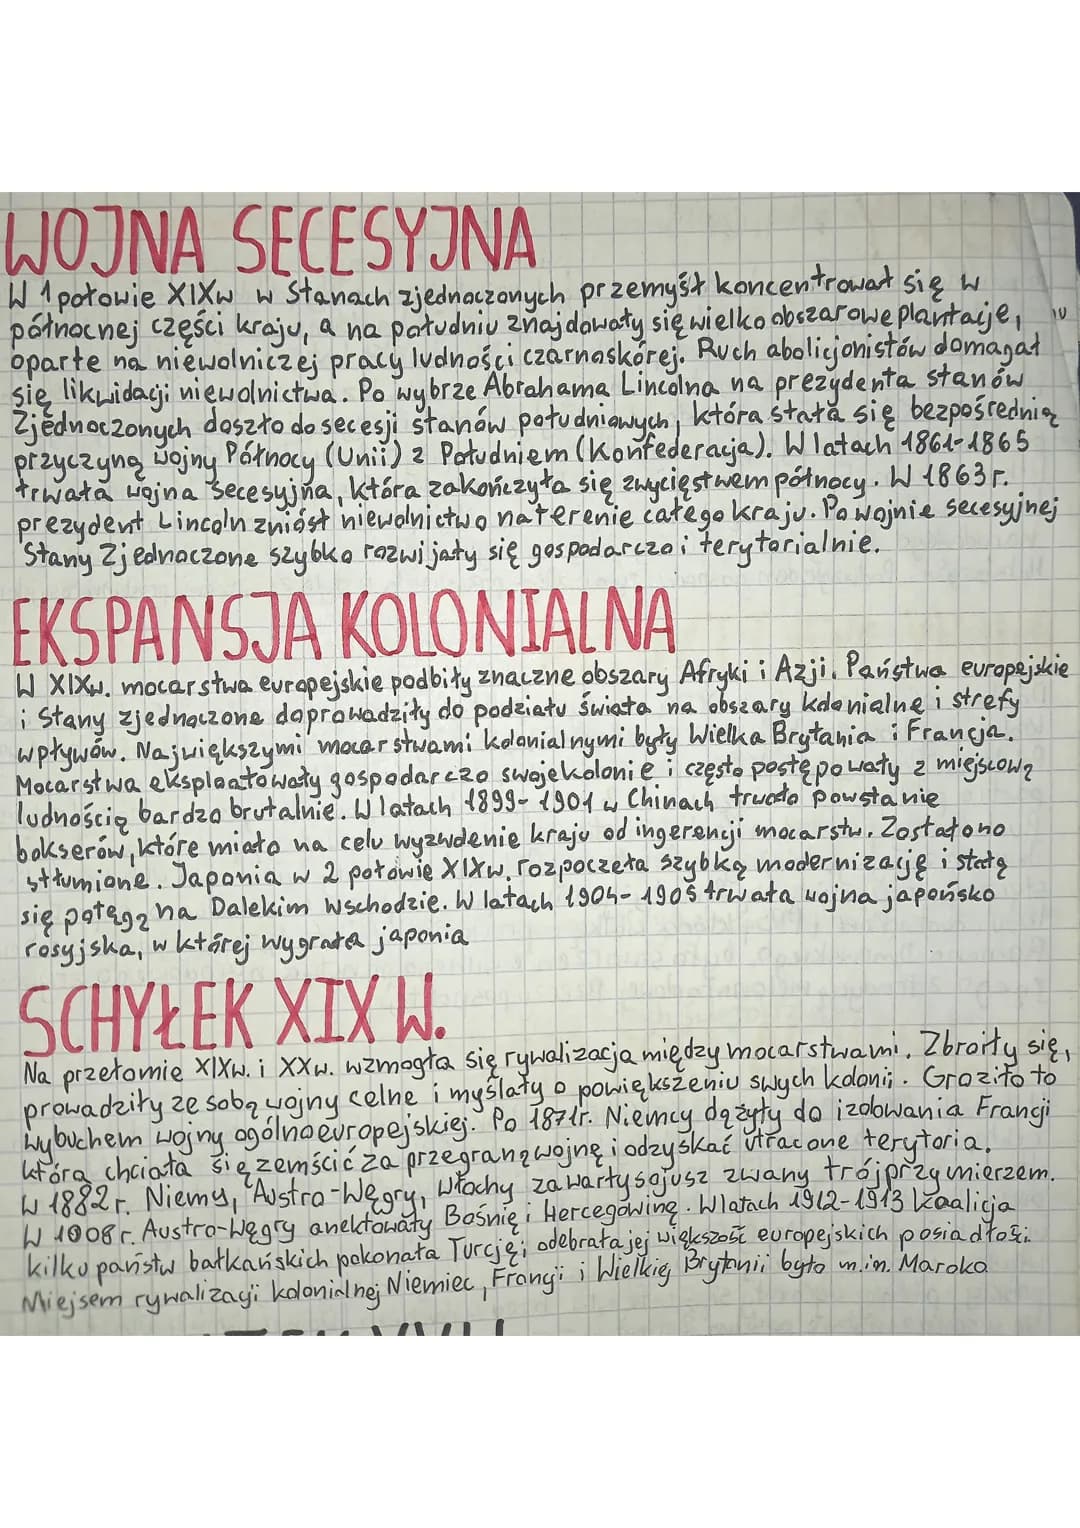 WOJNA SECESYJNA
W 1 połowie XIXw w Stanach zjednoczonych przemysł koncentrował się w
północnej części kraju, a na południu znajdowały się wielko obszarowe plantacje,
oparte na niewolniczej pracy ludności czarnoskórej. Ruch abolicjonistów domagał
się likwidacji niewolnictwa. Po wybrze Abrahama Lincolna na prezydenta stanów
Zjednoczonych doszło do secesji stanów południowych, która stała się bezpośrednią
przyczyną wojny Północy (Unii) z Południem (Konfederacja). W latach 1861-1865
trwała wojna secesyjna, która zakończyła się zwycięstwem północy. W 1863r.
prezydent Lincoln zniósł niewolnictwo na terenie całego kraju. Po wojnie secesyjnej
Stany Zjednoczone szybko rozwijały się gospodarczo i terytorialnie.
EKSPANSJA KOLONIALNA
W XIXw. mocarstwa europejskie podbiły znaczne obszary Afryki i Azji. Państwa europejskie
i Stany zjednoczone doprowadziły do podziału świata na obszary kolonialne i strefy
wpływów. Największymi mocarstwami kolonialnymi były Wielka Brytania i Francja.
Mocarstwa eksploatowały gospodarczo swoje kolonie i często postępowały z miejscową
ludnością bardzo brutalnie. W latach 1899-1901 w Chinach trwało powstanie
bokserów, które miało na celu wyzwolenie kraju od ingerencji mocarstw. Zostało ono
stłumione. Japonia w 2 połowie XIXw. rozpoczeła szybką modernizację i stałą
się potęgą na Dalekim wschodzie. W latach 1904-1905 trwała wojna japońsko
rosyjska, w której wygrała japonia
SCHYŁEK XIX W.
Na przełomie XIXw. i XXw. wzmogła się rywalizacja między mocarstwami. Zbroiły się,
prowadziły ze sobą wojny celne i myślały o powiększeniu swych kolonii. Groziło to
wybuchem wojny ogólnoeuropejskiej. Po 1871r. Niemcy dążyły do izolowania Francji
którą chciała się zemścić za przegraną wojnę i odzyskać utracone terytoria.
W 1882r. Niemy, Austro-Węgry, Włochy zawarły sojusz zwany trójprzymierzem.
W 1908r. Austro-Węgry anektowały Bośnię i Hercegowinę. W latach 1912-1913 koalicja
kilku państw bałkańskich pokonała Turcję i odebrała jej większość europejskich posiadłości.
Miejsem rywalizacji kolonialnej Niemiec, Francji i Wielkiej Brytanii było m.in. Maroko